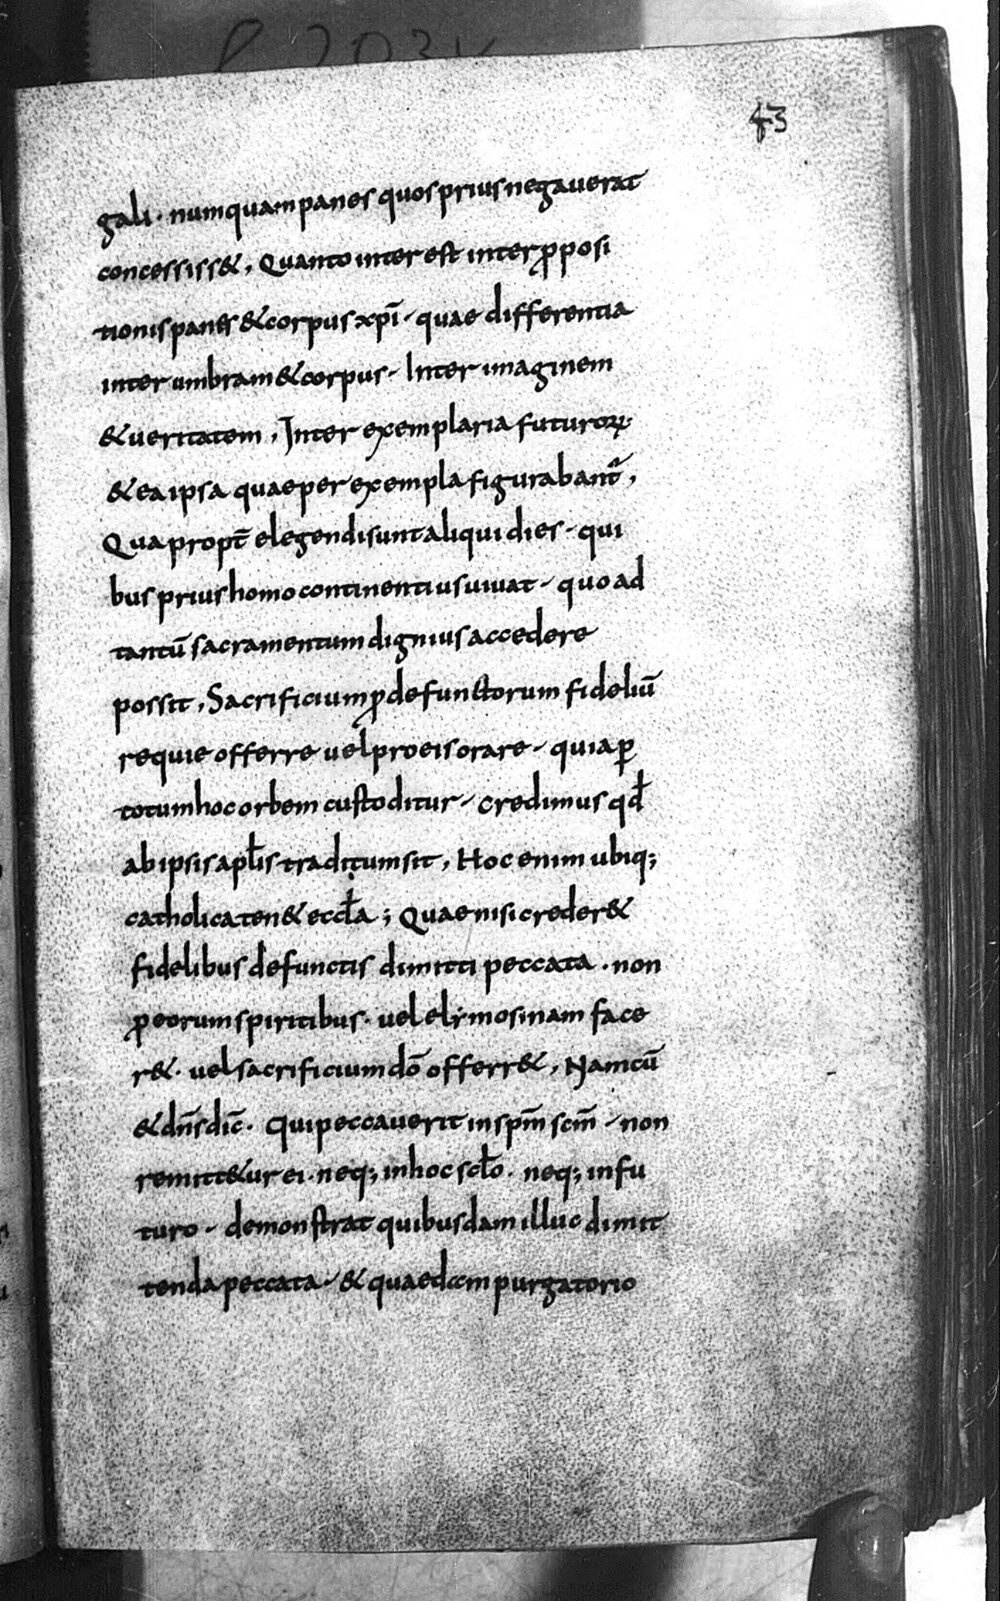 43
gali · numquam panes quos prius negauerat
concessiss&, Quanto interest inter p̄posi
tionis panes & corpus xp̄i - quae differentia
inter umbram & corpus - Inter imaginem
& ueritatem, Inter exemplaria futuroꝝ
& ea ipsa quae per exempla figurabant᷑,
Quapropt̄ elegendi sunt aliqui dies - qui
bus prius homo continentius uiuat - quo ad
tantū sacramentum dignius accedere
possit, Sacrificium ꝓ defunctorum fideliū
requie offerre uel pro eis orare - quia ꝑ
totum hoc orbem custoditur - credimus qđ
ab ipsis apłis traditum sit, Hoc enim ubiq;
catholica ten& eccła ; Quae nisi creder&
fidelibus defunctis dimitti peccata · non
ꝓ eorum spiritibus · uel elymosinam face
r& · uel sacrificium dō offerr&, Nam cū
& dn̄s dic̄ · Qui peccauerit in sp̄m sc̄m - non
remitt&ur ei · neq; in hoc scło · neq; in fu
turo - demonstrat quibusdam illuc dimit
tenda peccata - & quaedam purgatorio